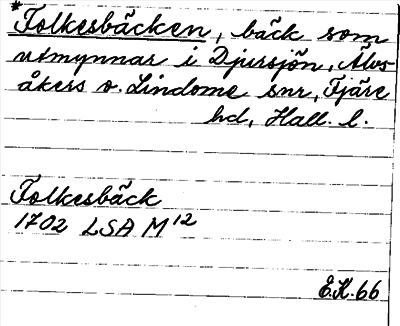 *Tolkesbäcken, bäck som
utmynnar i Djursjön, Älvs-
åkers o. Lindome snr, Fjäre
hd, Hall. l.
Tolkesbäck
1702 LSA M12
E.K.66